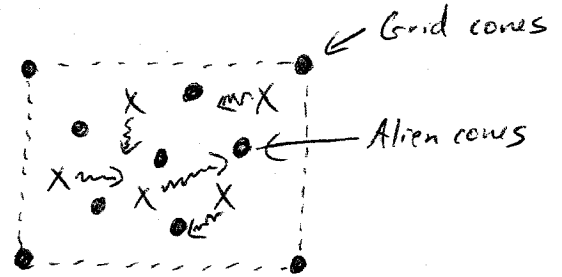 Grid cones
X X
Alien cones
X X X